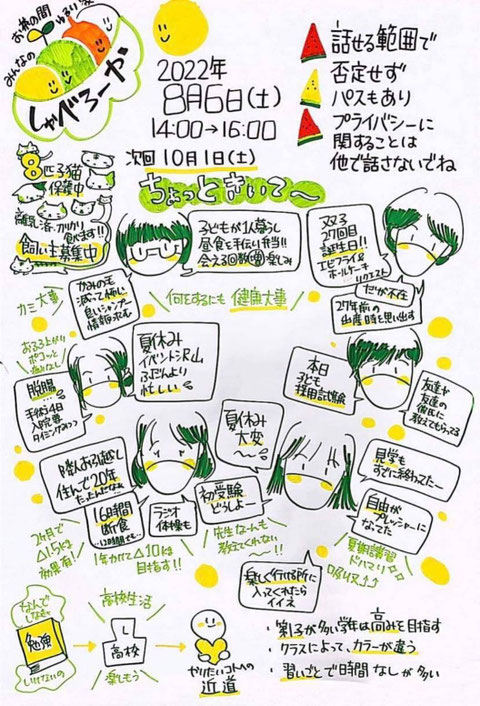 お茶の間
ゆるい家
みんなの
しゃべろーか
2022年
8月6日(土)
14:00→16:00
次回10月1日(土)
話せる範囲で
否定せず
パスもあり
プライバシーに
関することは
他で話さないでね
8匹子猫
保護中
離乳済、カリカリ
食べます!!
飼い主募集中
ちょっときいて〜
子どもが1人暮らし
昼食を手伝い弁当!!
会える回数増 楽しみ
双子
27回目
誕生日!!
エビフライ&
ホールケーキ
リクエスト
だが不在
27年前の
出産時を思い出す
かみのモ
減って怖い
良いシャンプー
情報求む
カミ大事
何をするにも健康大事
おふろ上がり
ポコッと
痛みなし
脱腸
手術4日
入院要
タイミングみつつ
夏休み
イベント沢山
ふだんより
忙しい
本日
子ども
採用試験
友達や
友達の
彼氏に
教えてもらってる
夏休み
大変〜
8数人お引越し
住んで20年
たったんだなぁ
16時間
断食
…12時間でも…
ラジオ
体操も
初受験
どうしよー
見学も
すでに終わってたー
自由が
プレッシャーに
なってた
2ヶ月で
△1.5kg
効果有!
1年かけて△10kg
目指す!!
先生なーんも
教えてくれない
〜!!
夏期講習
ドハマり
吸収↑↑
楽しく行ける所に
入ってくれたら
イイネ
なんで
しなきゃ
勉強
いけないの
高校生活
高校
楽しもう
やりたいコトへの
近道
・第1子が多い学年は高みを目指す
・クラスによって、カラーが違う
・習いごとで時間なしが多い